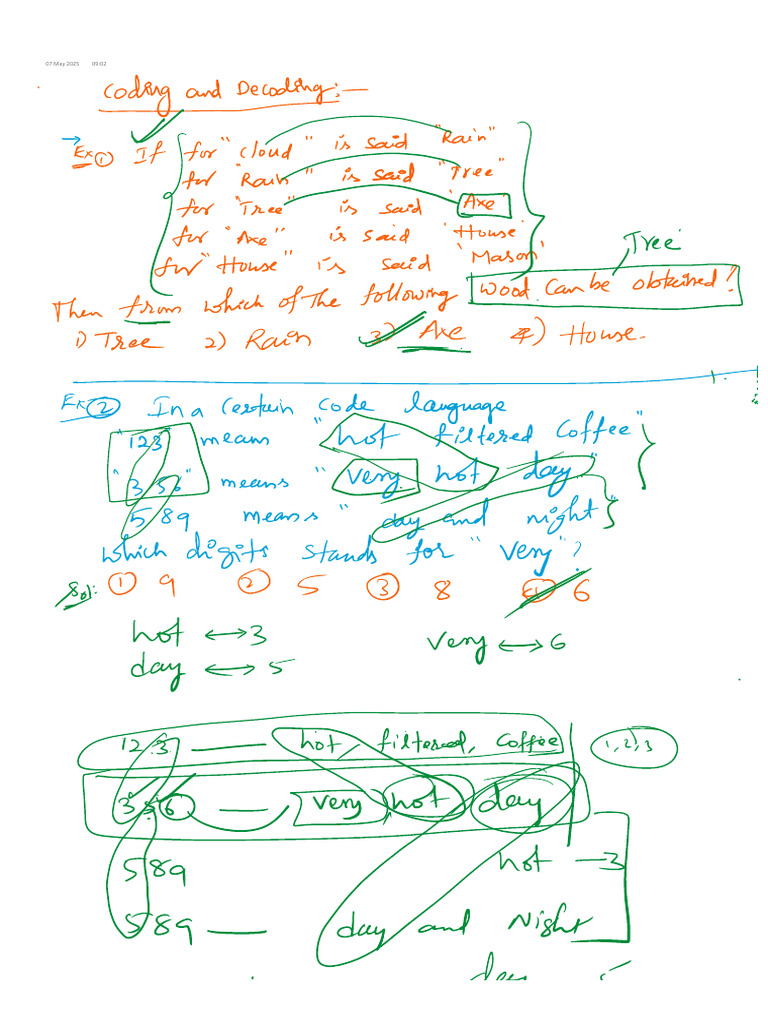 07 May 2025 09:02
Coding and Decoding:—
Ex① If for "Cloud" is said "Rain"
for "Rain" is said "Tree"
for "Tree" is said "Axe
for "Axe" is said "House"
for "House" is said "Mason"
Tree
Then from which of The following Wood Can be obtained?
1) Tree 2) Rain 3) Axe 4) House.
Ex② In a Certain Code language
"123" means "hot filtered Coffee"
"356" means "very hot day"
589 means "day and night"
Which digits stands for "Very"?
Sol: ① 9 ② 5 ③ 8 ④ 6
hot ↔ 3
Very ↔ 6
day ↔ 5
123 — hot, filtered, Coffee 1, 2, 3
356 — Very hot day
589 hot — 3
589 — day and Night
day